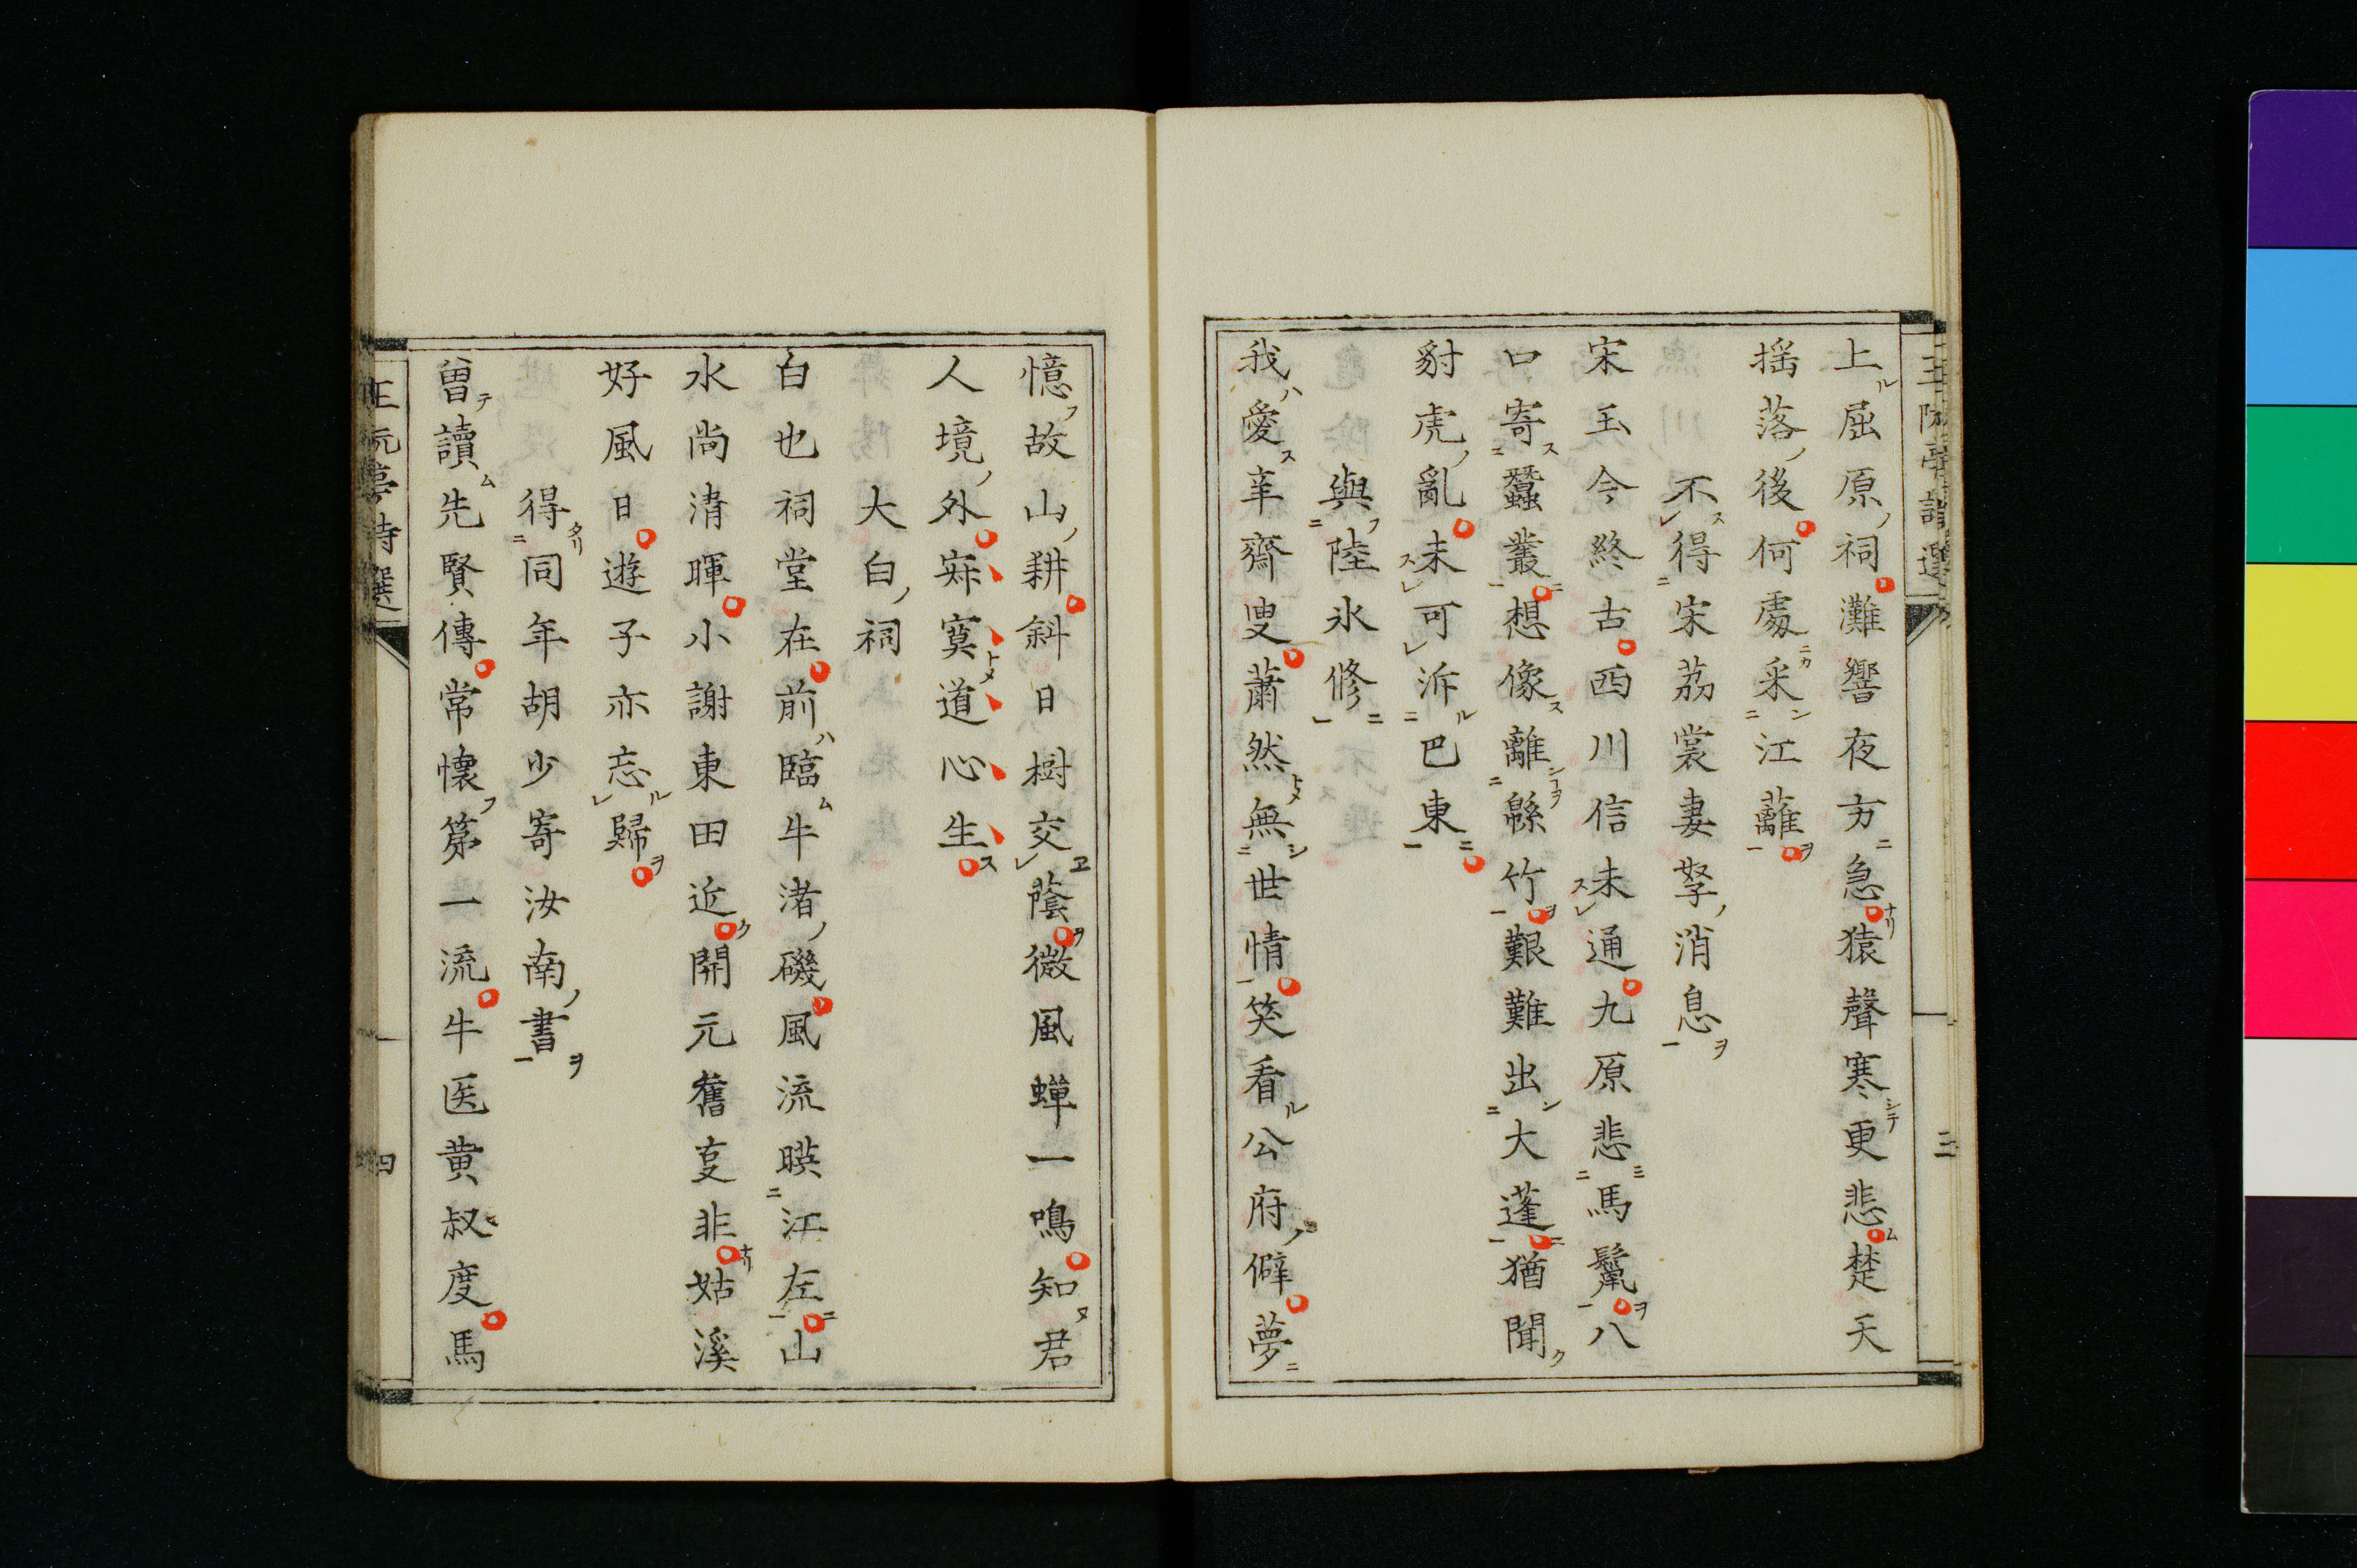 上屈原祠灘響夜方急猿聲寒更悲楚天
揺落後何處采江蘺
不得宋荔裳妻孥消息
宋玉今終古西川信未通九原悲馬鬣八
口寄蠶叢想像離緜竹艱難出大蓬猶聞
豺虎亂未可泝巴東
與陸氷修
我愛辛齋叟蕭然無世情笑看公府僻夢
憶故山耕斜日樹交蔭微風蟬一鳴知君
人境外寂寞道心生
大白祠
白也祠堂在前臨牛渚磯風流暎江左山
水尚清暉小謝東田近開元舊叓非姑溪
好風日遊子亦忘歸
得同年胡少寄汝南書
曾讀先賢傳常懷第一流牛医黄叔度馬
王阮亭詩選
四